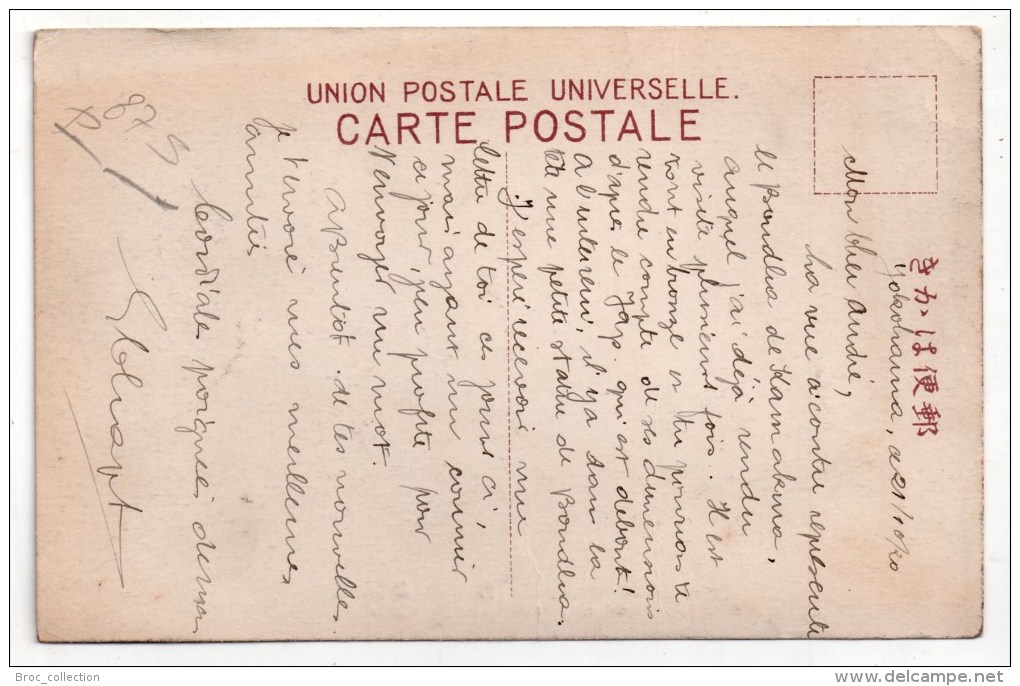 UNION POSTALE UNIVERSELLE.
CARTE POSTALE
きかは便郵
Yokohama, 21
Mon cher André,
La vue ci contre represente
le Bouddha de Kamakura,
auquel j'ai déjà rendu
visite plusieurs fois. Il est
tout en bronze et tu pourras te
rendre compte de ses dimensions
d'apres le Jap. qui est debout!
A l'interieur, il y a dans la
tête une petite statue de Bouddha.
J'espere recevoir une
lettre de toi ces jours ci,
mais ayant un courrier
ce jour, j'en profite pour
t'envoyer un mot.
A Bientôt de tes nouvelles.
Je t'envoie mes meilleures
amitiés
Cordiale poignée de main
87
Broc_collection
www.delcampe.net